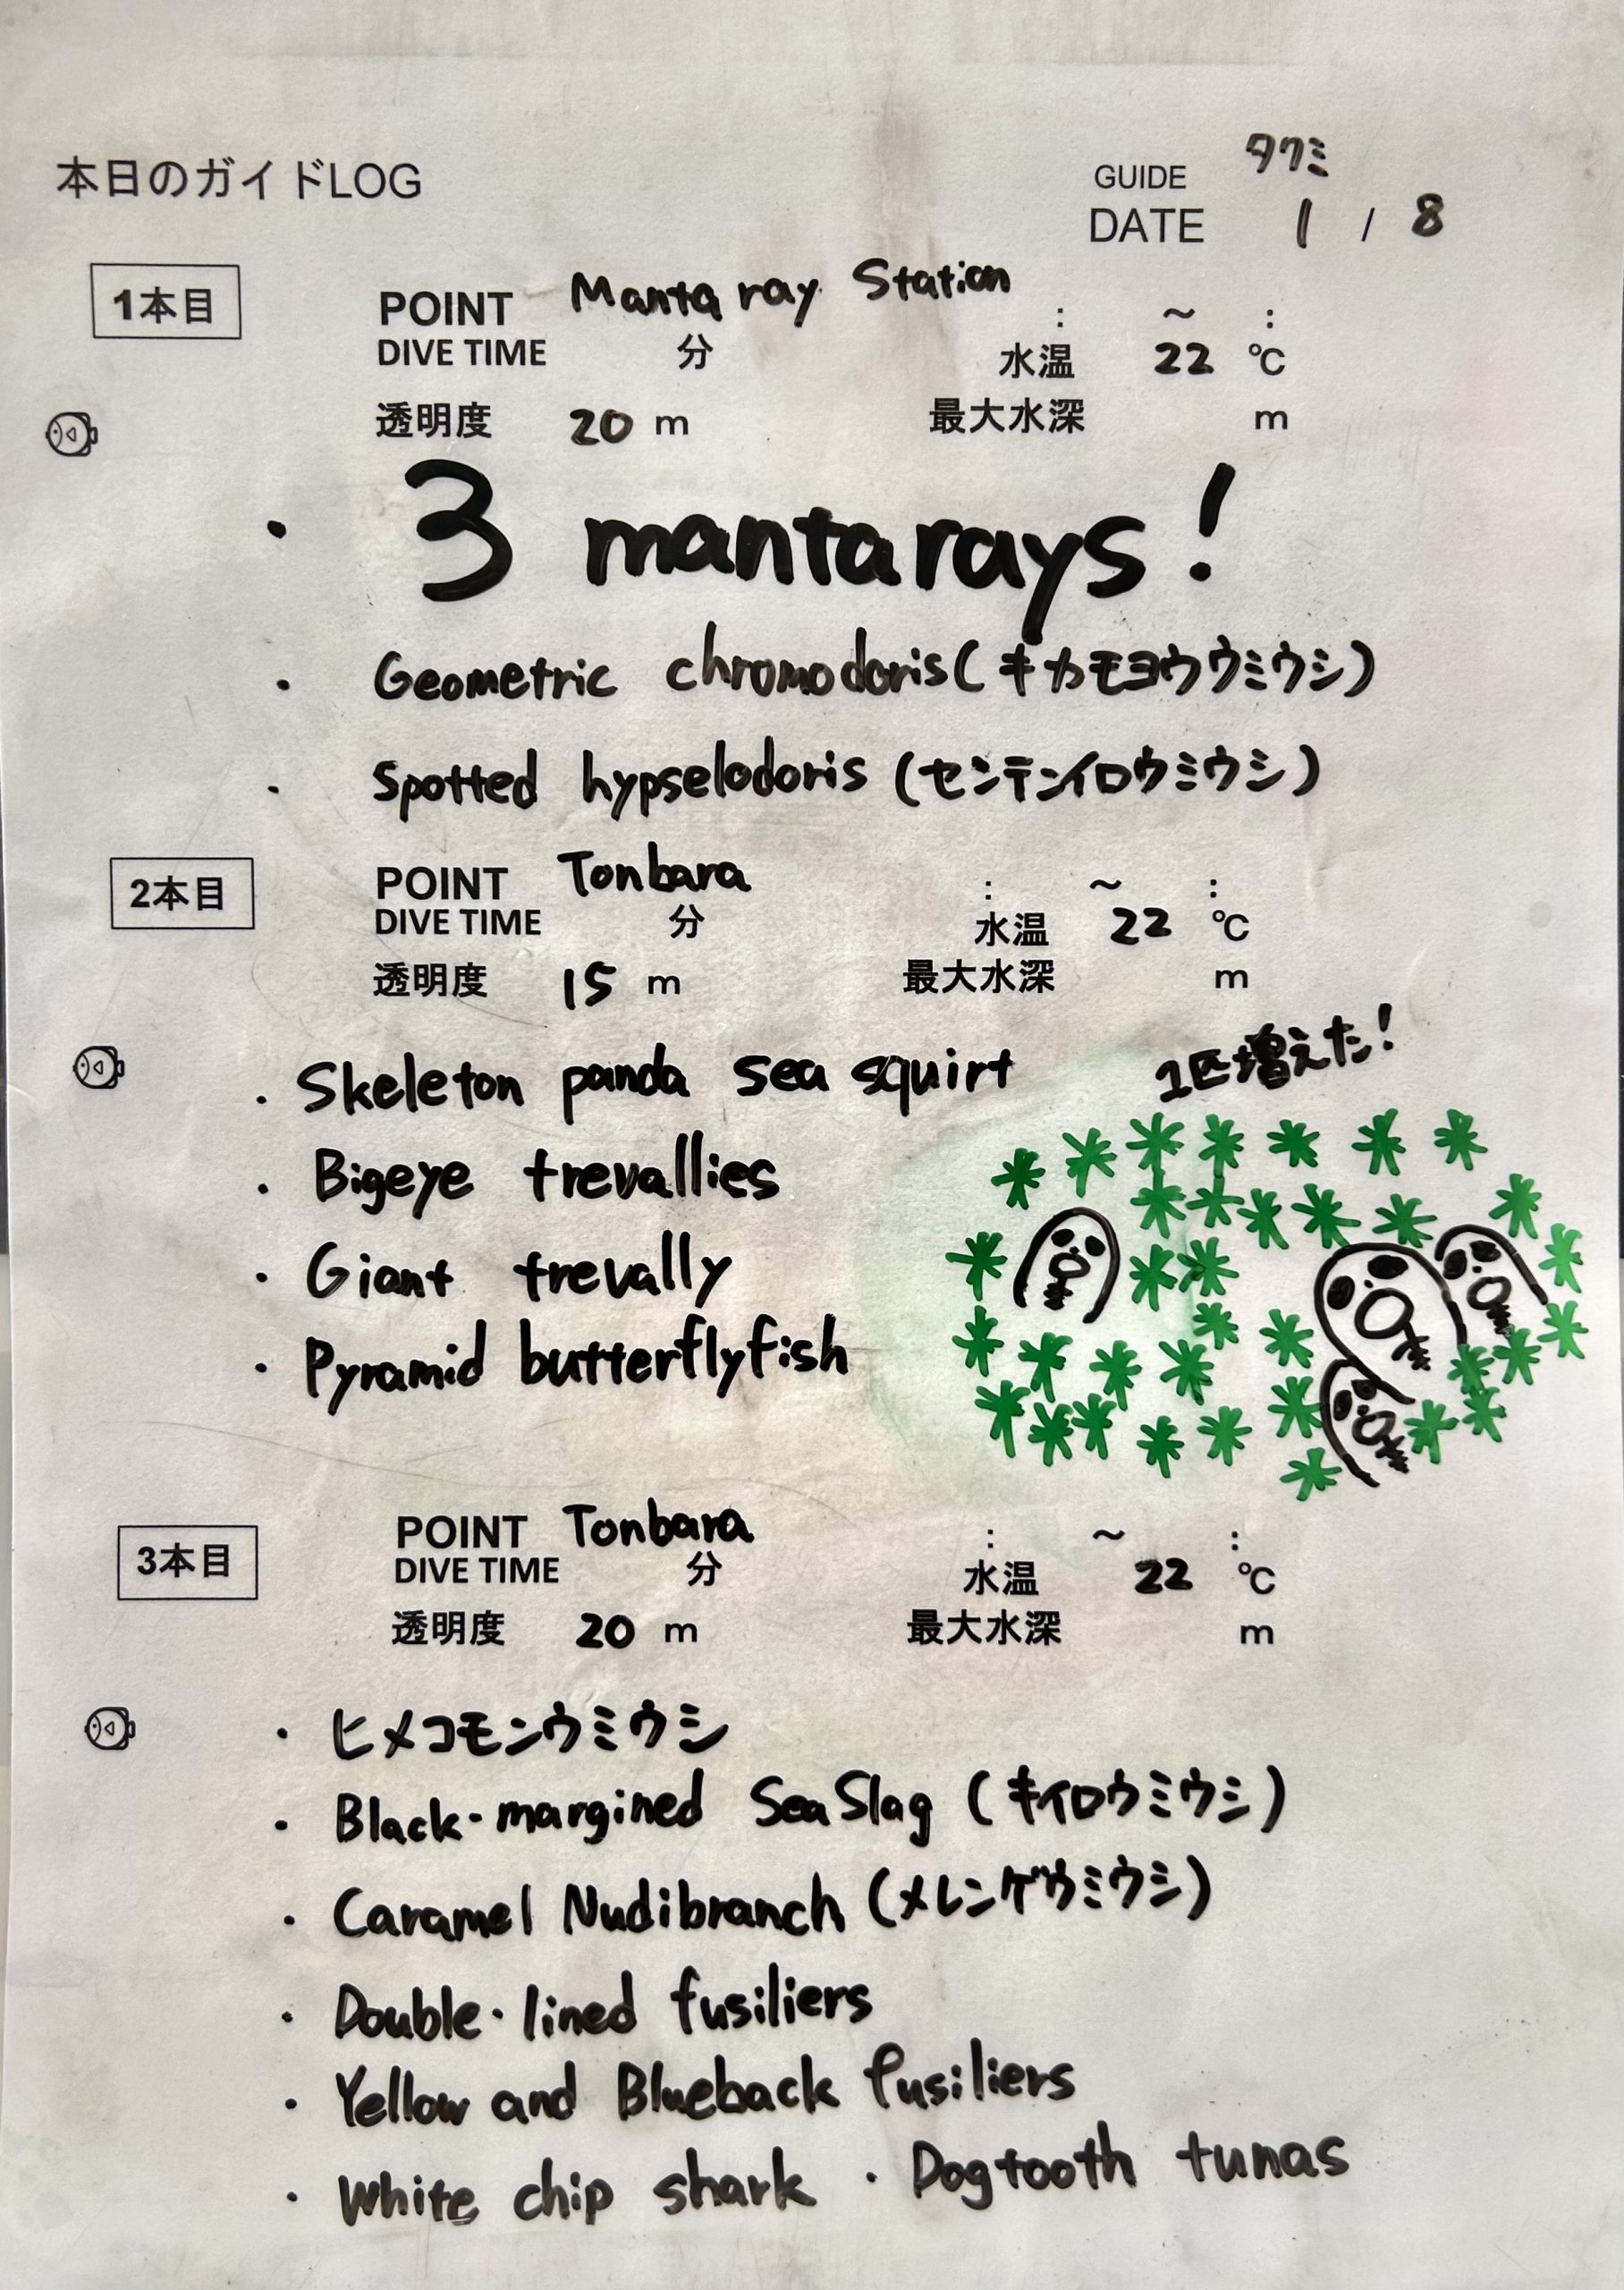 本日のガイドLOG
GUIDE タクミ
DATE 1 / 8
1本目
POINT Manta ray Station : ～ :
DIVE TIME 分 水温 22 ℃
透明度 20 m 最大水深 m
・ 3 manta rays!
・ Geometric chromodoris (キカモヨウウミウシ)
・ Spotted hypselodoris (センテンイロウミウシ)
2本目
POINT Tonbara : ～ :
DIVE TIME 分 水温 22 ℃
透明度 15 m 最大水深 m
・ Skeleton panda sea squirt
1匹増えた!
・ Bigeye trevallies
・ Giant trevally
・ Pyramid butterflyfish
3本目
POINT Tonbara : ～ :
DIVE TIME 分 水温 22 ℃
透明度 20 m 最大水深 m
・ ヒメコモンウミウシ
・ Black-margined Sea Slag (キイロウミウシ)
・ Caramel Nudibranch (メレンゲウミウシ)
・ Double-lined fusiliers
・ Yellow and Blueback fusiliers
・ White chip shark ・ Dogtooth tunas